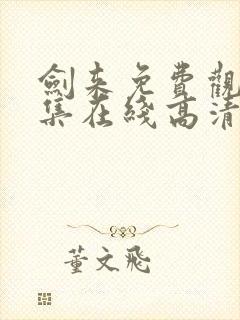 劍来免費觀
集在綫高清
董文飛